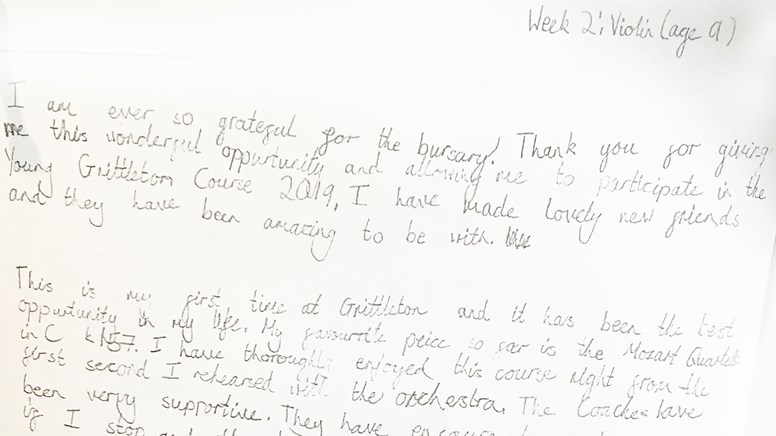 Week 2: Violin (age 9)
I am ever so grateful for the bursary! Thank you for giving
me this wonderful oppurtunity and allowing me to participate in the
Young Grittletom Course 2019, I have made lovely new friends
and they have been amazing to be with.
This is my first time at Grittleton and it has been the best
opportunity in my life. My favourrite peice so far is the Mozart Quartet
in C k157. I have thoroughly enjoyed this course right from the
first second I rehearsed with the orchestra. The Coaches have
been verpy supportive. They have
if I stop and